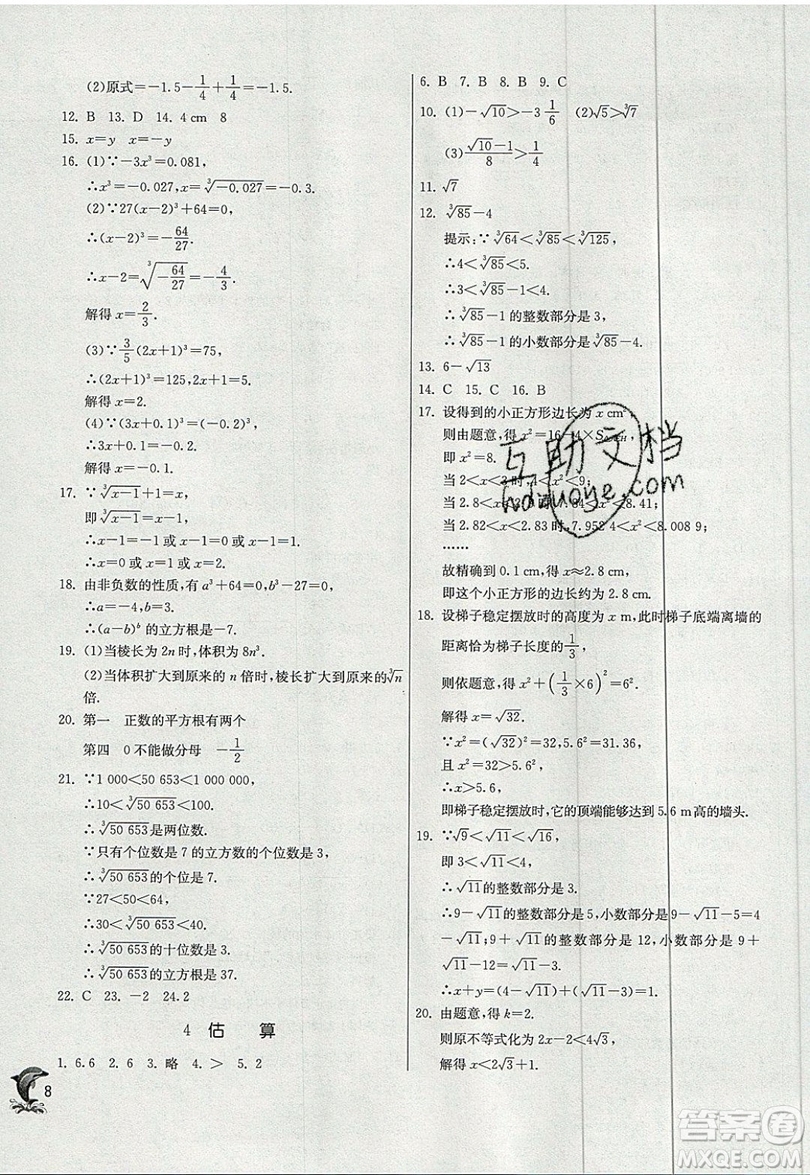 (2)原式=-1.5-1/4+1/4=-1.5.
12. B  13. D  14. 4 cm  8
15. x=y  x=-y
16. (1)∵-3x³=0.081,
∴x³=-0.027,x=∛-0.027=-0.3.
(2)∵27(x-2)³+64=0,
∴(x-2)³=-64/27.
∴x-2=∛(-64/27)=-4/3.
解得 x=2/3.
(3)∵3/5(2x+1)³=75,
∴(2x+1)³=125,2x+1=5.
解得 x=2.
(4)∵(3x+1.2)³=0.729,
∴3x+1.2=0.9.
解得 x=-0.1.
17. ∵∛(x-1)+1=x,
即∛(x-1)=x-1,
∴x-1=-1或x-1=0或x-1=1.
∴x=0或x=1或x=2.
18. 由非负数的性质,有 a³+64=0,b³-27=0.
∴a=-4,b=3.
∴(a-b)ᵇ 的立方根是-7.
19. (1)当棱长为 2n 时,体积为 8n³.
(2)当体积扩大到原来的 n 倍时,棱长扩大到原来的∛n
倍.
20. 第一  正数的平方根有两个
第四  0不能做分母  -1/2
21. ∵1 000<50 653<1 000 000,
∴10<∛50 653<100.
∴∛50 653是两位数.
∵只有个位数是 7 的立方数的个位数是 3,
∴∛50 653的个位数是 7.
∵27<50<64,
∴30<∛50 653<40.
∴∛50 653的十位数是 3.
∴∛50 653的立方根是 37.
22. C  23. -2  24.2
4 估 算
1. 6.6  2. 6  3. 略  4. >  5. 2
8
6. B  7. B  8. B  9. C
10. (1)-√10>-3 1/6  (2)√5>∛7
(3)(√10-1)/8>1/4
11. √7
12. ∛85-4
提示:∵∛64<∛85<∛125,
∴4<∛85<5.
∴3<∛85-1<4.
∴∛85-1的整数部分是 3,
∴∛85-1的小数部分是∛85-4.
13. 6-√13
14. C  15. C  16. B
17. 设得到的小正方形边长为 x cm
则由题意,得 x²=16-4×S
即 x²=8.
当 2<x<3 时,4<x²<9;
当 2.8<x<2.9 时,7.84<x²<8.41;
当 2.82<x<2.83 时,7.952 4<x²<8.008 9;
……
故精确到 0.1 cm,得 x≈2.8 cm,
即这个小正方形的边长约为 2.8 cm.
18. 设梯子稳定摆放时的高度为 x m,此时梯子底端离墙的
距离恰为梯子长度的1/3,
则依题意,得 x²+(1/3×6)²=6².
解得 x=√32.
∵x²=(√32)²=32,5.6²=31.36,
∴x²>5.6².
∴x>5.6,
即梯子稳定摆放时,它的顶端能够达到 5.6 m 高的墙头.
19. ∵√9<√11<√16,
即 3<√11<4.
∴√11的整数部分是 3.
∴9-√11的整数部分是 5,小数部分是 9-√11-5=4
-√11;9+√11的整数部分是 12,小数部分是 9+
√11-12=√11-3.
∴x+y=4-√11+√11-3=1.
20. 由题意,得 k=2.
则原不等式化为 2x-2<4√3.
解得 x<2√3+1.
互助文档
hdzuoye.com
答案卷
MXQE.COM